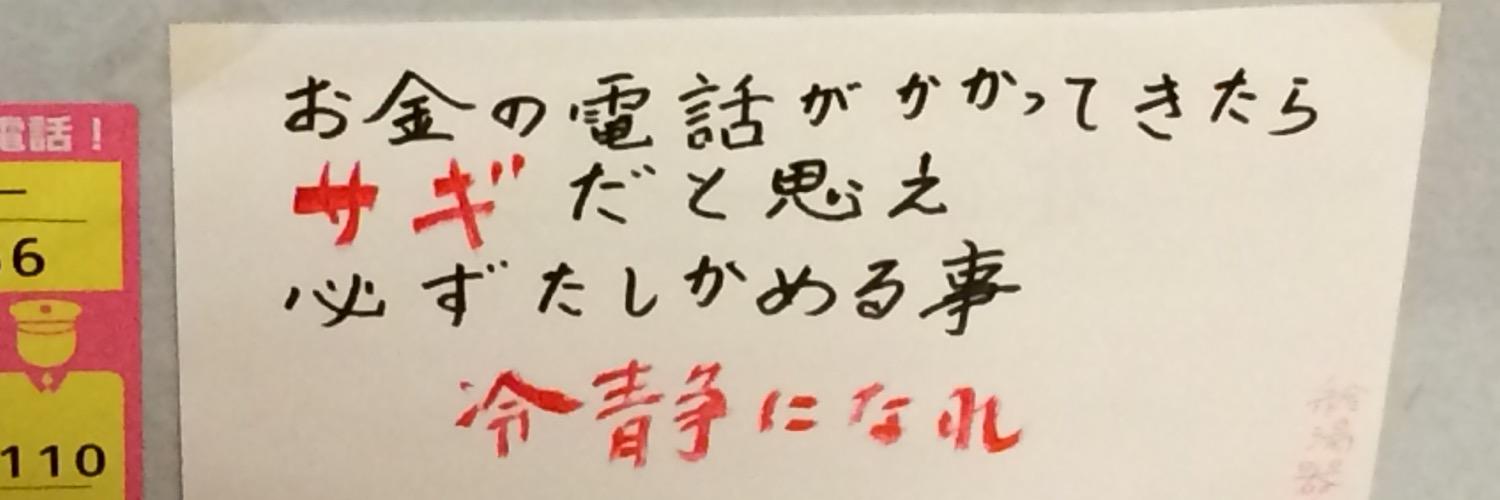 お金の電話がかかってきたら
サギだと思え
必ずたしかめる事
冷静になれ
電話！
6
110